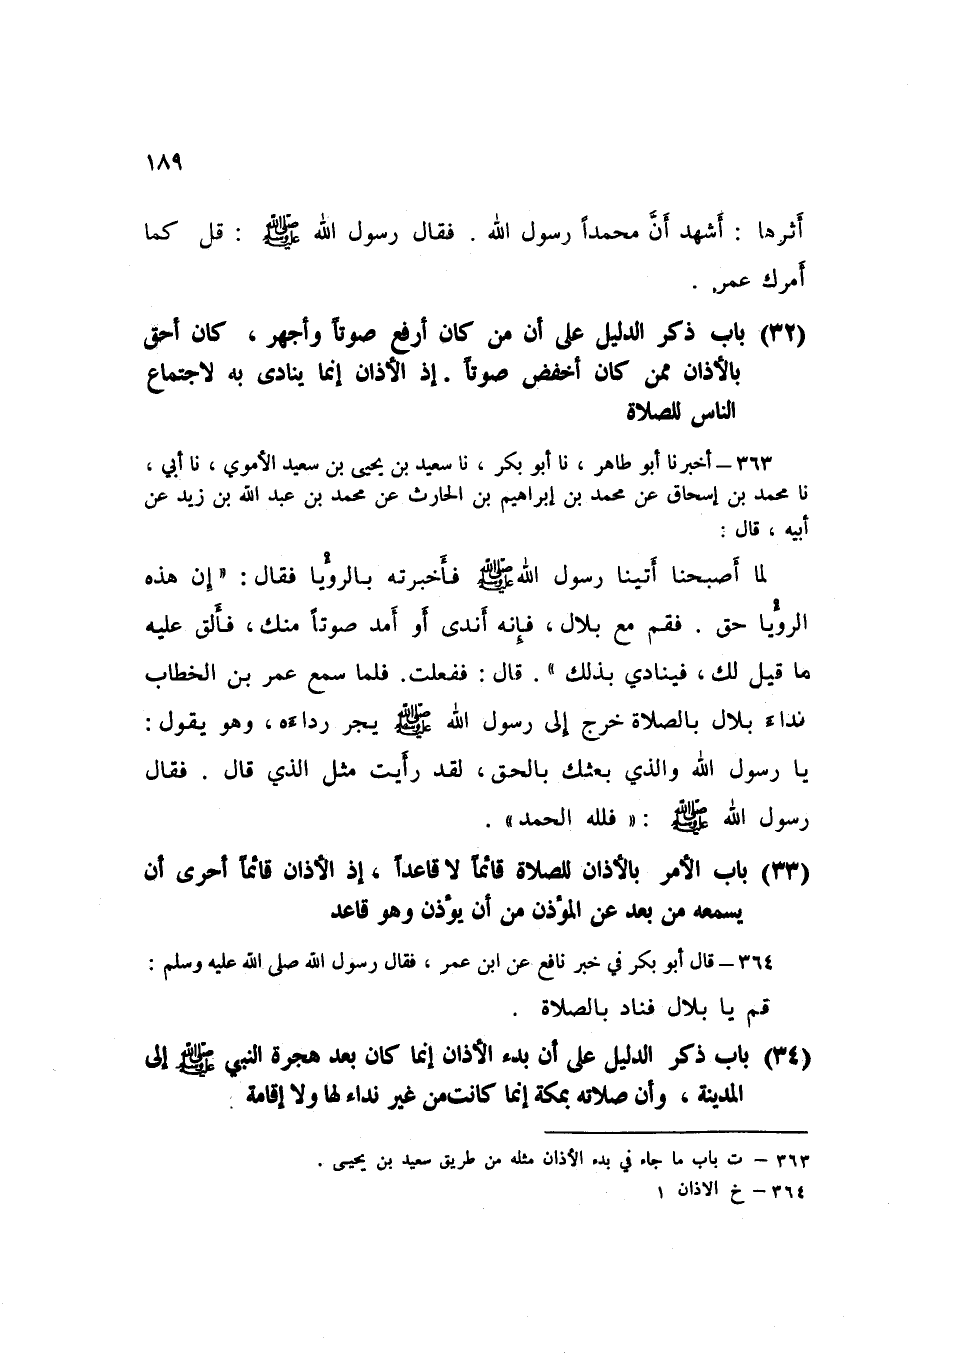 ١٨٩
أثرها : أشهد أنَّ محمداً رسول الله . فقال رسول الله ﷺ : قل كما
أمرك عمر .
(٣٢) باب ذكر الدليل على أن من كان أرفع صوتاً وأجهر ، كان أحق
بالأذان ممن كان أخفض صوتاً . إذ الأذان إنما ينادى به لاجتماع
الناس للصلاة
٣٦٣ – أخبرنا أبو طاهر ، نا أبو بكر ، نا سعيد بن يحيى بن سعيد الأموي ، نا أبي ،
نا محمد بن إسحاق عن محمد بن إبراهيم بن الحارث عن محمد بن عبد الله بن زيد عن
أبيه ، قال :
لما أصبحنا أتينا رسول الله ﷺ فأخبرته بالرؤيا فقال : « إن هذه
الرؤيا حق . فقم مع بلال ، فإنه أندى أو أمد صوتاً منك ، فألق عليه
ما قيل لك ، فينادي بذلك » . قال : ففعلت . فلما سمع عمر بن الخطاب
نداء بلال بالصلاة خرج إلى رسول الله ﷺ يجر رداءه ، وهو يقول :
يا رسول الله والذي بعثك بالحق ، لقد رأيت مثل الذي قال . فقال
رسول الله ﷺ : « فلله الحمد » .
(٣٣) باب الأمر بالأذان للصلاة قائماً لا قاعداً ، إذ الأذان قائماً أحرى أن
يسمعه من بعد عن المؤذن من أن يؤذن وهو قاعد
٣٦٤ – قال أبو بكر في خبر نافع عن ابن عمر ، فقال رسول الله صلى الله عليه وسلم :
قم يا بلال فناد بالصلاة .
(٣٤) باب ذكر الدليل على أن بدء الأذان إنما كان بعد هجرة النبي ﷺ إلى
المدينة ، وأن صلاته بمكة إنما كانت من غير نداء لها ولا إقامة .
٣٦٣ – ت باب ما جاء في بدء الأذان مثله من طريق سعيد بن يحيى .
٣٦٤ – خ الاذان ١